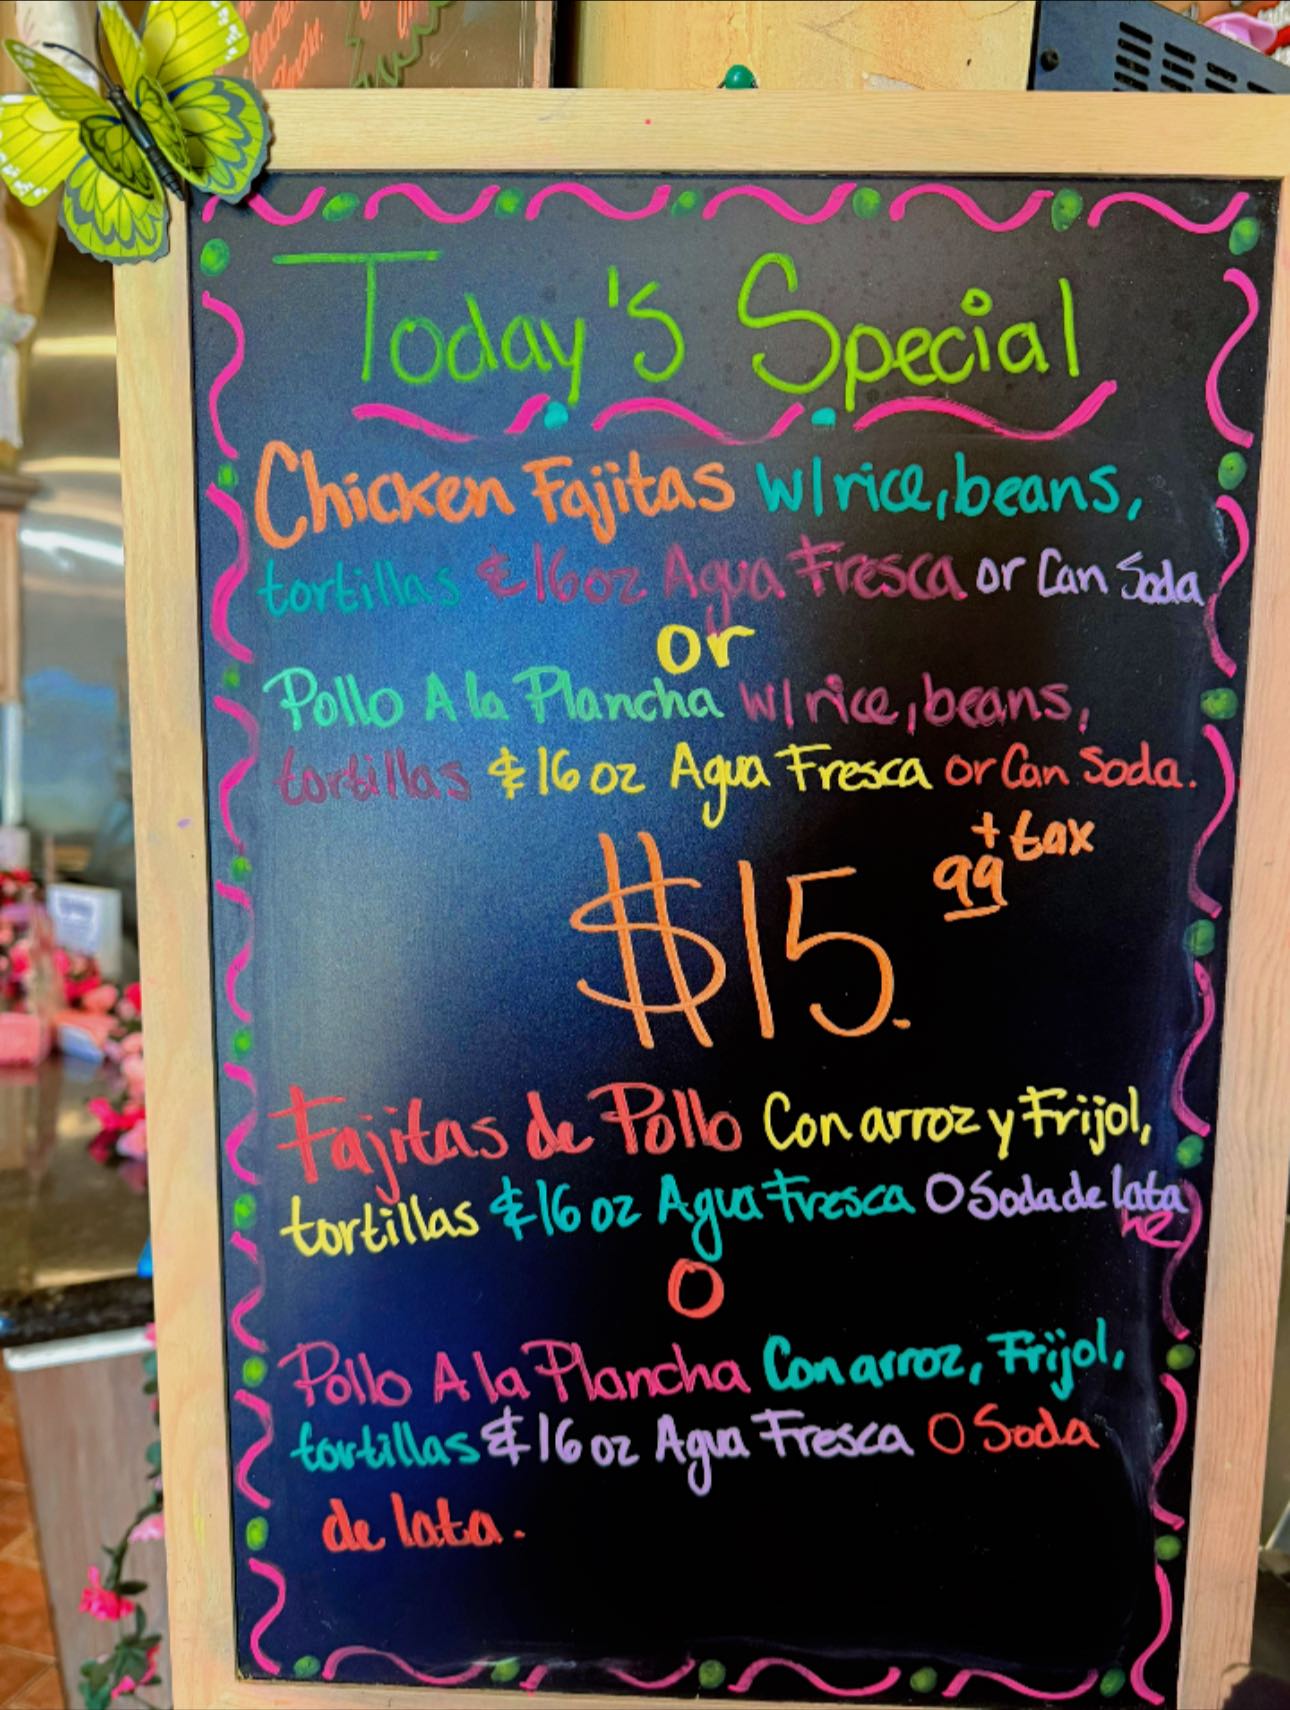 Today's Special
Chicken Fajitas w/rice, beans,
tortillas & 16oz Agua Fresca or Can Soda
or
Pollo A la Plancha w/rice, beans,
tortillas & 16 oz Agua Fresca or Can Soda.
$15.99 + tax
Fajitas de Pollo Con arroz y Frijol,
tortillas & 16 oz Agua Fresca O Soda de lata
O
Pollo A la Plancha Con arroz, Frijol,
tortillas & 16 oz Agua Fresca O Soda
de lata.